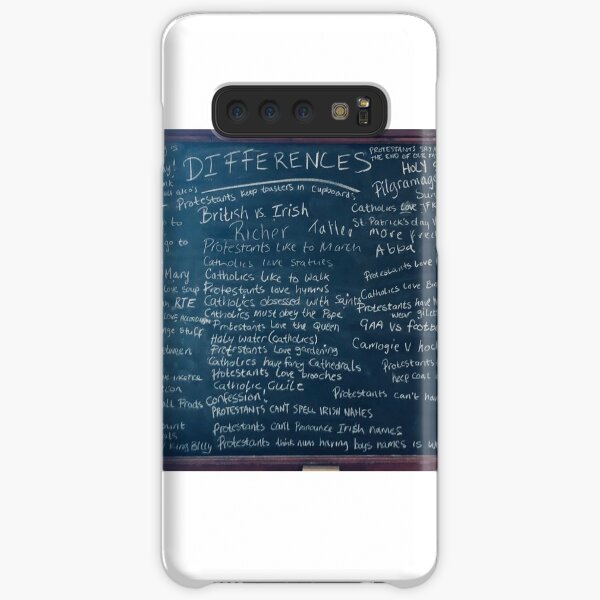 y is
DIFFERENCES
PROTESTANTS SAY
THE END OF OUR FA
HOLY S
Pilgramage
Sun
Protestants keep toasters in cupboards
British vs. Irish
Catholics Love JFK
St. Patrick's day V
to
Richer Taller
more frec
go to
Protestants like to March
Abba
Catholics love statues
Mary
Catholics like to walk
Protestants Love
love soup
Protestants love hymns
Catholics Love Br
RTE
Catholics obsessed with Saints
Protestants have
wear gilet
Catholics must obey the Pope
LOVE ACCORDION
Protestants Love the Queen
GAA VS footba
nge stuff
Holy water (Catholics)
Camogie V hoc
etween
Protestants Love gardening
Catholics have fancy Cathedrals
Protestants
keep coal
ve incense
Protestants Love brooches
ion
Catholic Guilt
Protestants can't ha
all Prods
Confession!
PROTESTANTS CAN'T SPELL IRISH NAMES
aint
als
Protestants can't Pronounce Irish names
King Billy
Protestants think nuns having boys names is w